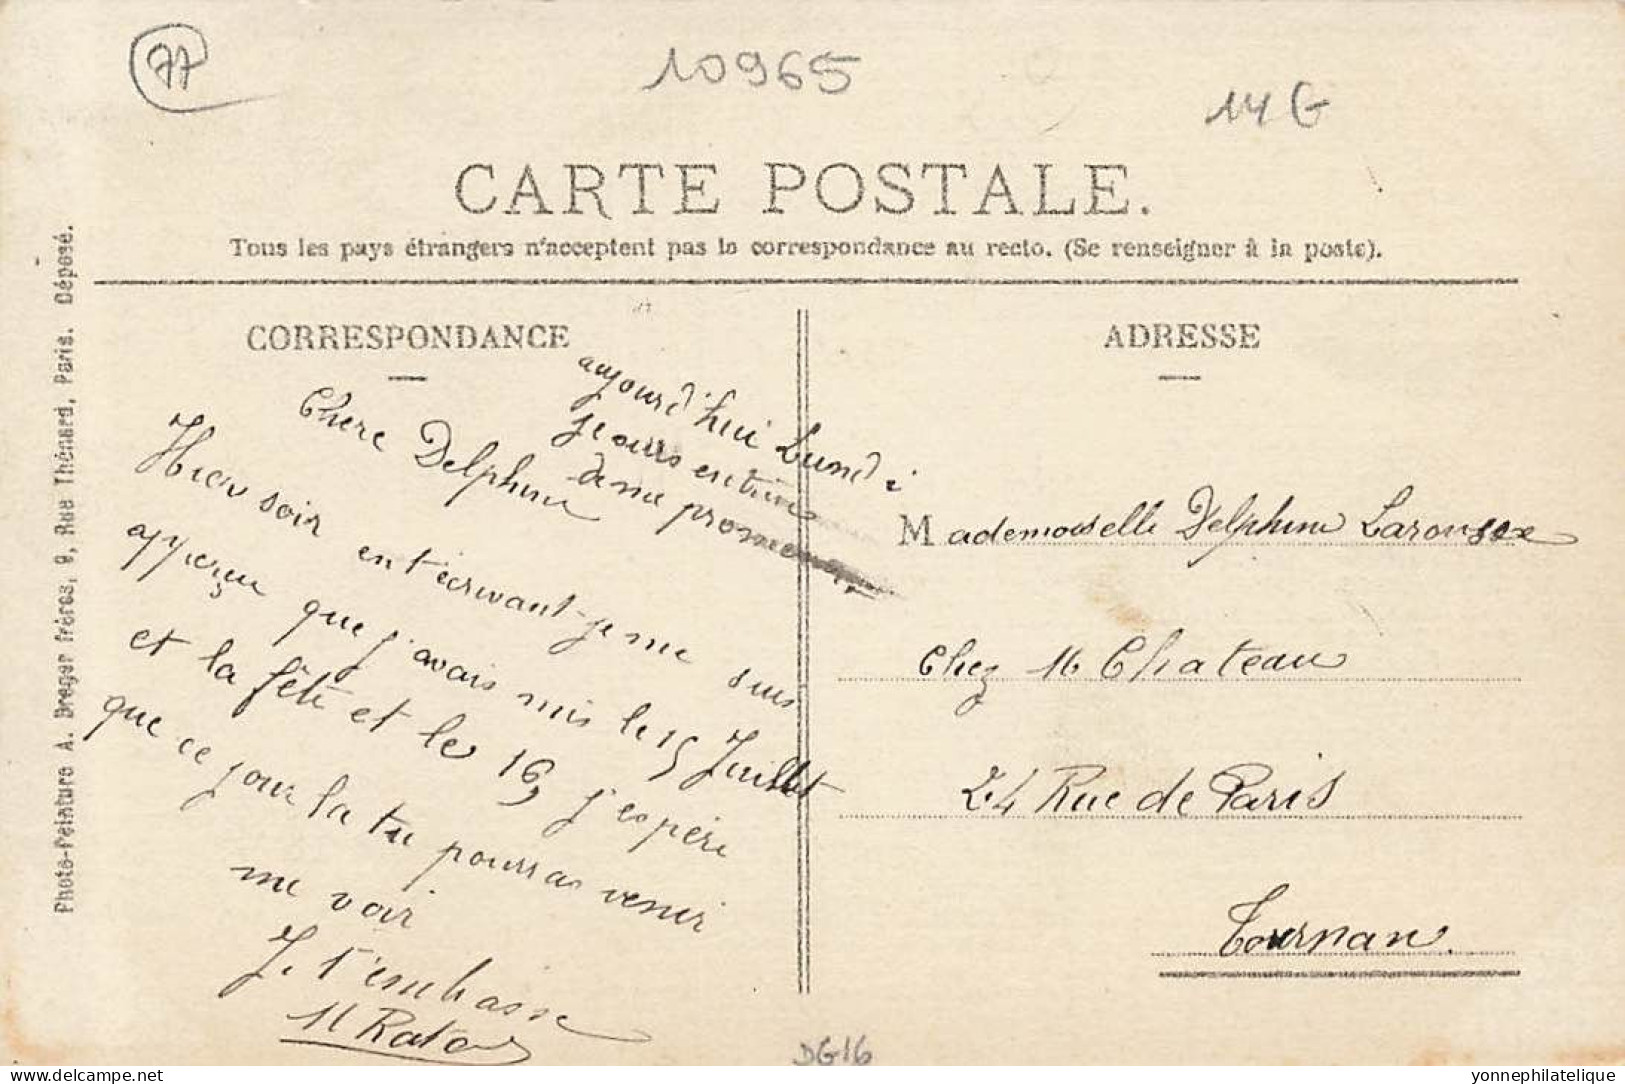 77
10965
14 €
CARTE POSTALE.
Tous les pays étrangers n'acceptent pas la correspondance au recto. (Se renseigner à la poste).
Photo-Peinture A. Breger frères, 9, Rue Thénard, Paris. Déposé.
CORRESPONDANCE
aujourd'hui Lundi
jeours entière
de me promener
Chere Delphine
Hier soir en t'écrivant je me suis
apperçu que j'avais mis le 15 Juillet
et la fête et le 16, j'espère
que ce jour la tu pourras venir
me voir
J. t'embasse
M Rato
ADRESSE
Mademoiselle Delphine Larousse
Chez M Chateau
24 Rue de Paris
Tournan.
DG16
yonnephilatelique